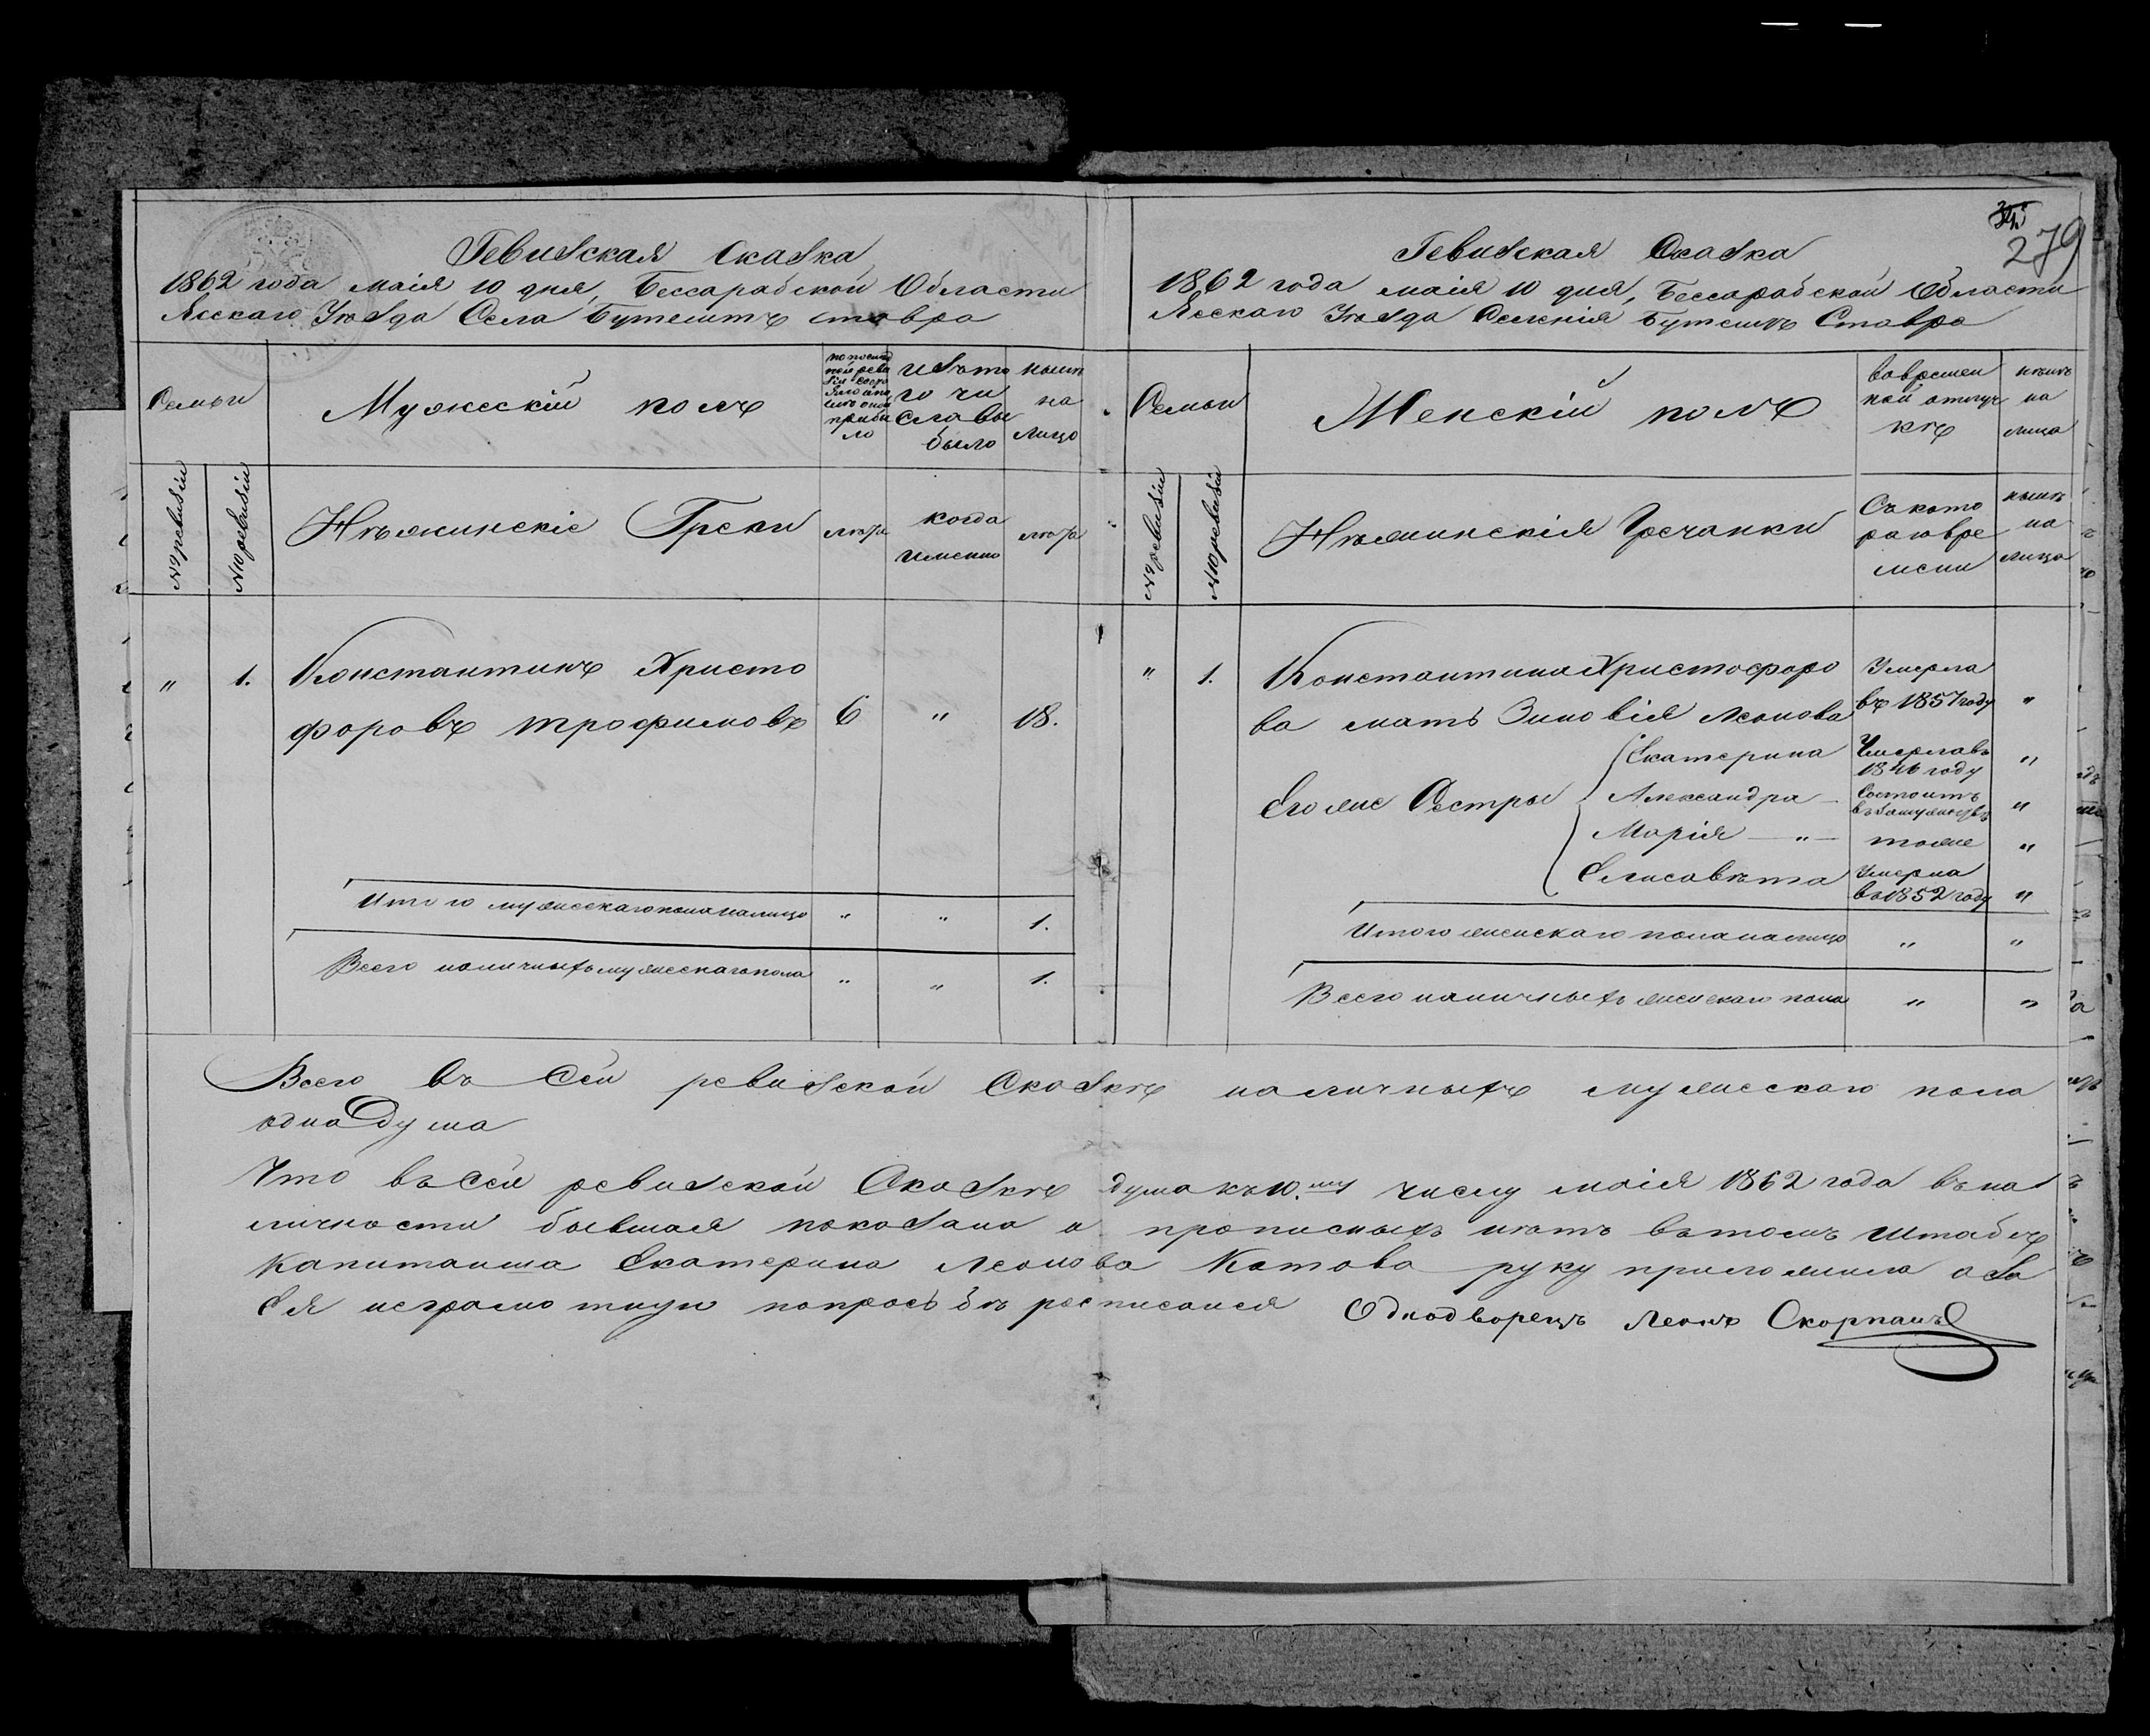 Ревизская Сказка
1862 года маія 10 дня, Бессарабской Области
Ясскаго Уѣзда Села Бутештъ ставра
Семьи
Мужескій полъ
изъ то
го чи
сла вы
было
нынѣ
на
лицо
№ 9 ревизіи
№ 10 ревизіи
Нѣжинскіе Греки
лѣта
когда
именно
лѣта
" 1. Константинъ Христо
форовъ трофимовъ 6 " 18.
Итого мужескаго пола налицо " " 1.
Всего наличныхъ мужескаго пола " " 1.
279
Ревизская Сказка
1862 года маія 10 дня, Бессарабской Области
Ясскаго Уѣзда Селенія Бутештъ Ставра
Семьи
Женскій полъ
во времен
ной отлуч
кѣ
нынѣ
на
лицо
№ 9 ревизіи
№ 10 ревизіи
Нѣжинскія Гречанки
Съ кото
раго вре
мени
нынѣ
на
лицо
" 1. Константина Христофоро
ва мать Зиновія Леонова
Умерла
въ 1857 году "
Его же Сестры
Екатерина Умерла въ
1846 году "
Александра — Состоитъ
въ замужествѣ "
Марія — " — тоже "
Елисавѣта Умерла
въ 1852 году "
Итого женскаго пола налицо " "
Всего наличныхъ женскаго пола " "
Всего въ Сей ревизской Сказкѣ наличныхъ мужескаго пола
одна Душа
Что въ сей ревизской Сказкѣ душа къ 10.му числу маія 1862 года въ на
личности бывшая показана и прописныхъ нѣтъ въ томъ Штабсъ
Капитанша Екатерина Леонова Катова руку приложила а за
Ея неграмотную попрозьбѣ росписался Однодворецъ Леонъ Скорпанъ